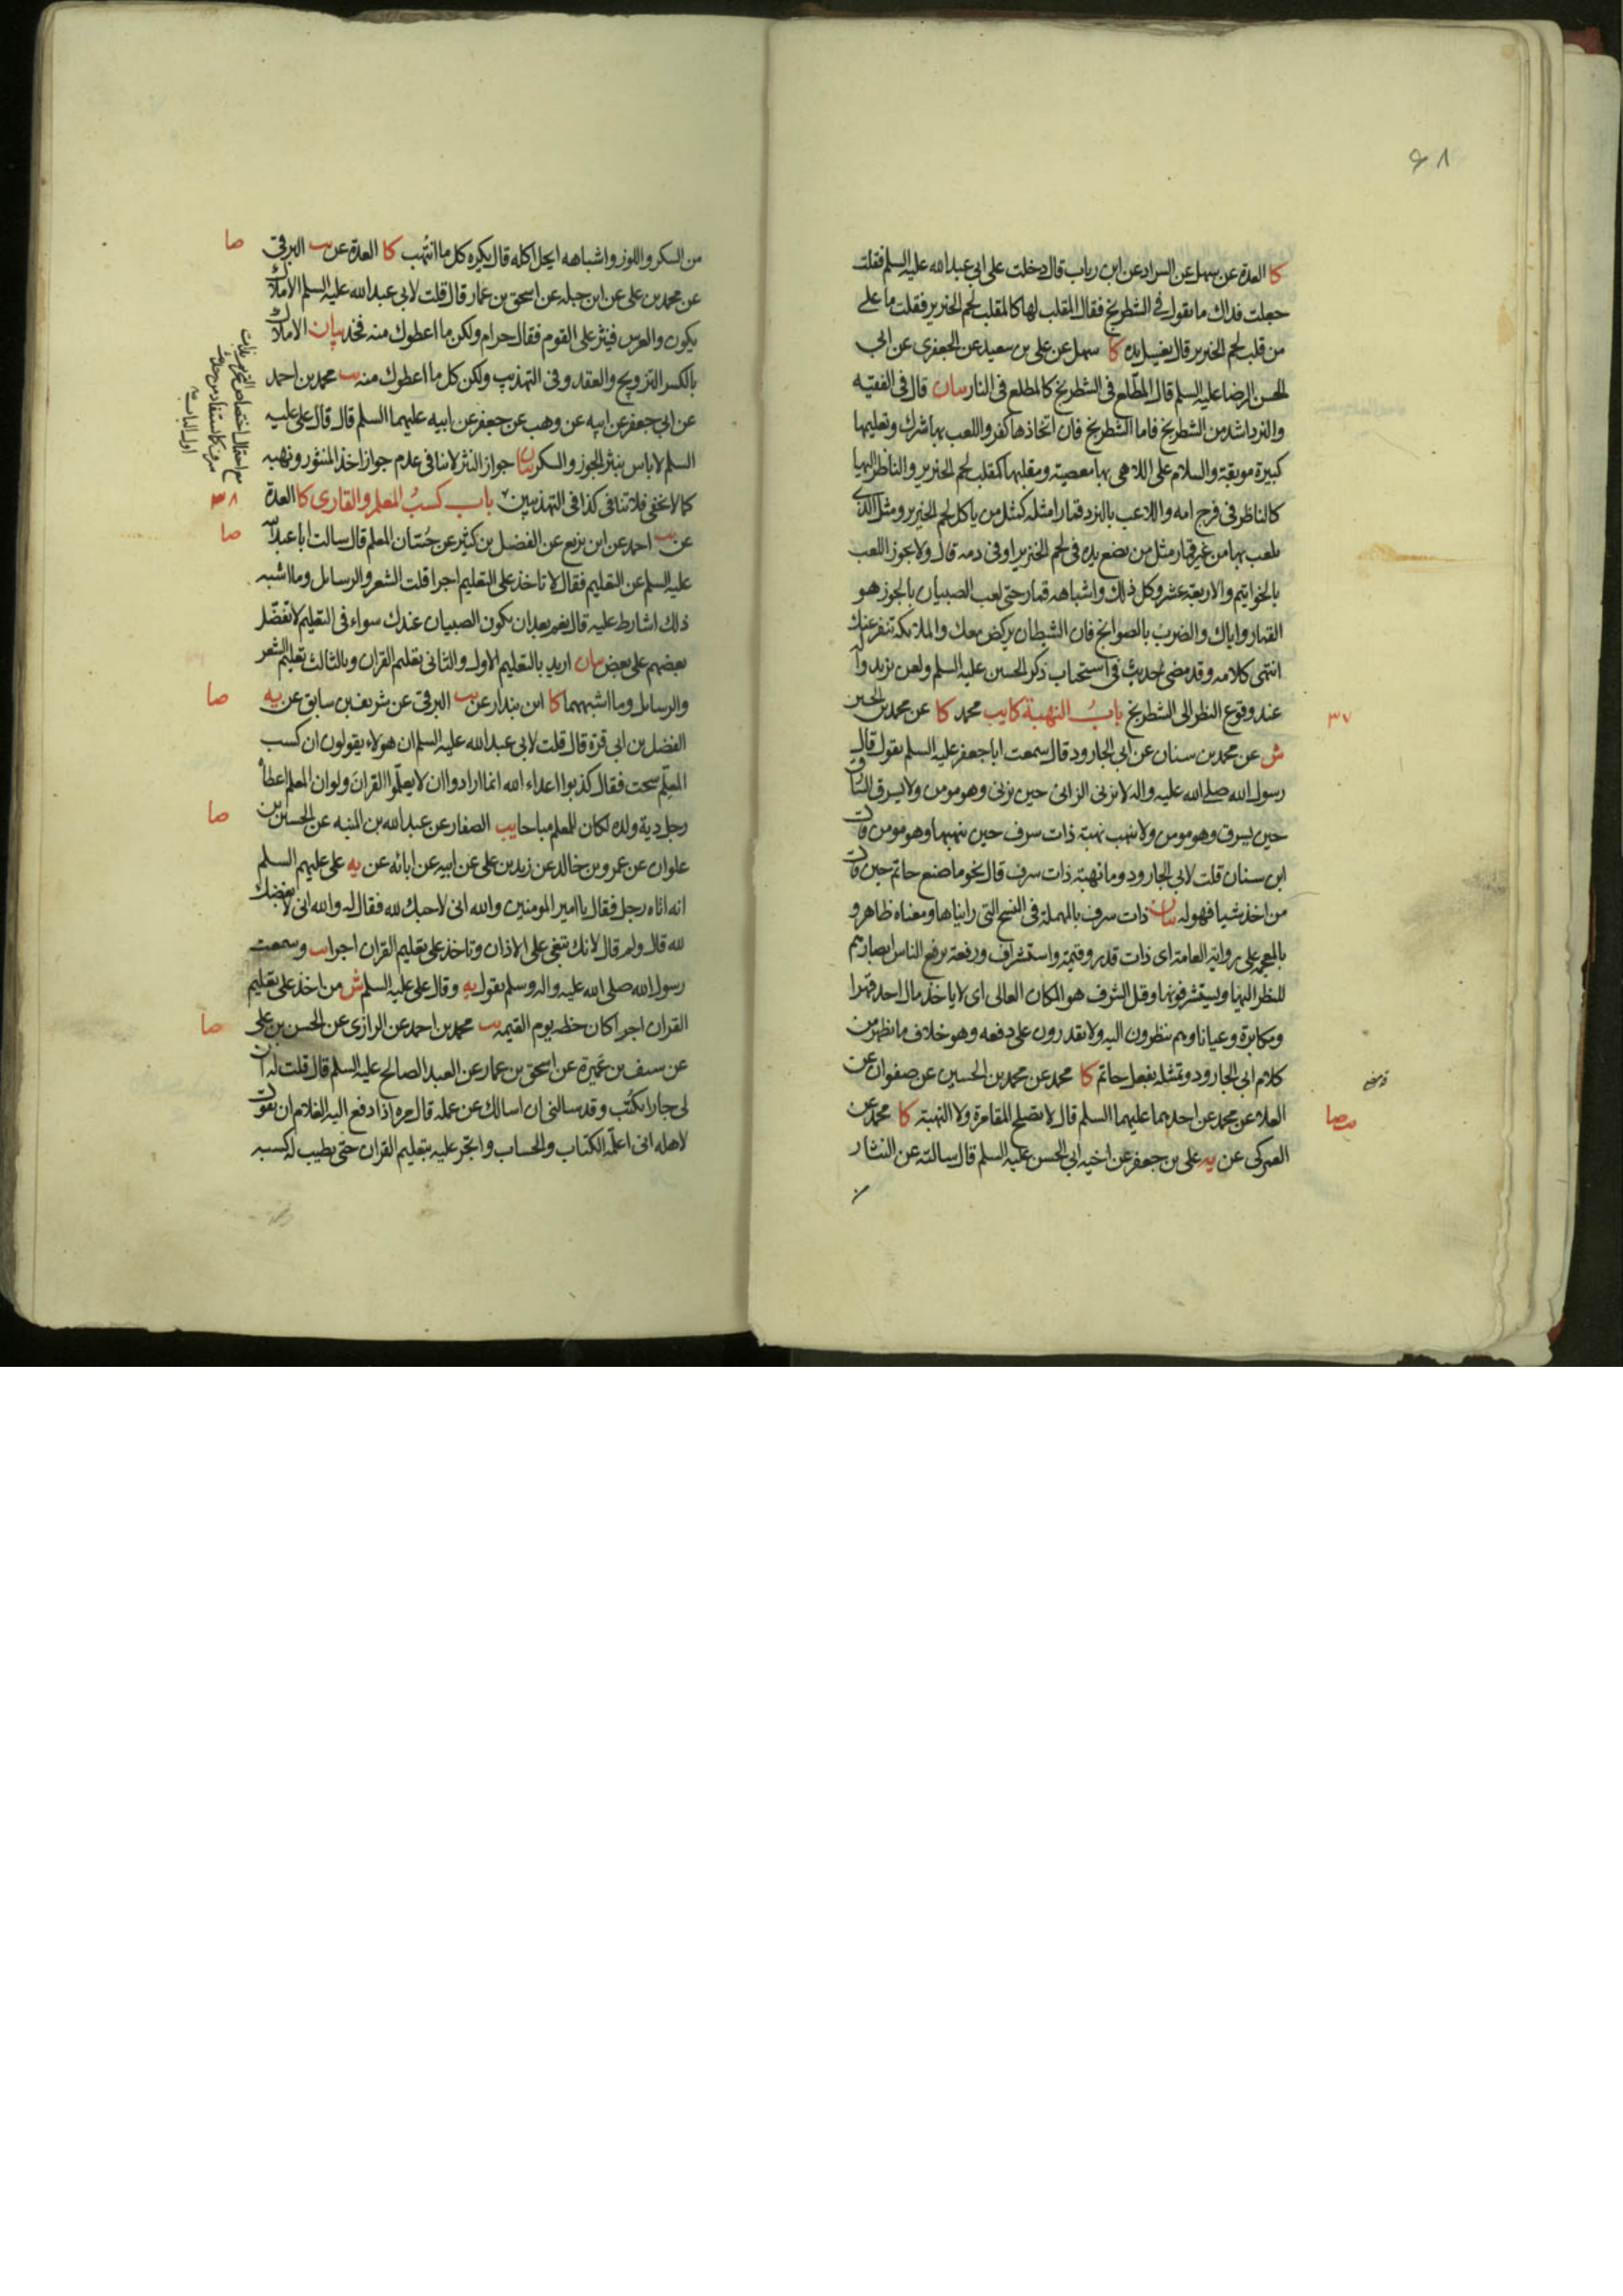 ۶۸
كا العدة عن سهل عن السراد عن ابن رباب قال دخلت على ابي عبد الله عليه السلم فقلت
جعلت فداك ما تقول في الشطرنج فقال المقلب لها كالمقلب لحم الخنزير فقلت ما على
من قلب لحم الخنزير قال يغسل يده كا سهل عن على بن سعيد عن الجعفرى عن ابي
الحسن الرضا عليه السلم قال المطلع فى الشطرنج كالمطلع فى النار بيان قال فى الفقيه
والنرد اشد من الشطرنج فاما الشطرنج فان اتخاذها كفر واللعب بها شرك وتعليمها
كبيرة موبقة والسلام على اللاهى بها معصية ومقلبها كمقلب لحم الخنزير والناظر اليها
كالناظر فى فرج امه واللاعب بالنرد قمارا مثله كمثل من ياكل لحم الخنزير ومثل الذى
يلعب بها من غير قمار مثل من يضع يده فى لحم الخنزير او فى دمه قال ولا يجوز اللعب
بالخواتيم والاربعة عشر وكل ذلك واشباهه قمار حتى لعب الصبيان بالجوز هو
القمار واياك والضرب بالصوانج فان الشيطان يركض معك والملائكة تنفر عنك
انتهى كلامه وقد مضى حديث فى استحباب ذكر الحسين عليه السلم ولعن يزيد وآله
عند وقوع النظر الى الشطرنج باب النهبة كا يب محمد كا عن محمد بن الحسين
۳۷
ش عن محمد بن سنان عن ابى الجارود قال سمعت ابا جعفر عليه السلم يقول قال
رسول الله صلى الله عليه واله لا يزنى الزانى حين يزنى وهو مومن ولا يسرق السارق
حين يسرق وهو مومن ولا ينهب نهبة ذات سرف حين ينهبها وهو مومن قال
ابن سنان قلت لابى الجارود وما نهبة ذات سرف قال نحو ما صنع حاتم حين قال
من اخذ شيا فهو له بيان ذات سرف بالمهملة فى النسخ التى رايناها ومعناه ظاهر و
بالمعجمة على رواية العامة اى ذات قدر وقيمة واستشراف ورفعة يرفع الناس ابصارهم
للنظر اليها ويستشرفونها وقيل الشرف هو المكان العالى اى لا ياخذ مال احد قهرا
ومكابرة وعيانا وهم ينظرون اليه ولا يقدرون على دفعه وهو خلاف ما يظهر من
كلام ابى الجارود وتمثله بفعل حاتم كا محمد عن محمد بن الحسين عن صفوان عن
العلاء عن محمد عن احدهما عليهما السلم قال لا يصلح المقامرة ولا النهبة كا محمد عن
يب صا
العمركى عن يه على بن جعفر عن اخيه ابى الحسن عليه السلم قال سالته عن النثار
من
من السكر واللوز واشباهه ايحل اكله قال يكره كل ما انتهب كا العدة عن يب البرقى
صا
عن محمد بن على عن ابن جبله عن اسحق بن عمار قال قلت لابى عبد الله عليه السلم الاملاك
يكون والعرس فينثر على القوم فقال حرام ولكن ما اعطوك منه فخذ بيان الاملاك
بالكسر التزويج والعقد وفى التهذيب ولكن كل ما اعطوك منه يب محمد بن احمد
عن ابى جعفر عن ابيه عن وهب عن جعفر عن ابيه عليهما السلم قال قال على عليه
السلم لا باس بنثر الجوز والسكر بيان جواز النثر لا ينافى عدم جواز اخذ المنثور ونهبه
كما لا يخفى فلا تنافى كذا فى التهذيبين باب كسب المعلم والقارى كا العدة
۳۸
عن يب احمد عن ابن بزيع عن الفضل بن كثير عن حسان المعلم قال سالت ابا عبد الله
صا
عليه السلم عن التعليم فقال لا تاخذ على التعليم اجرا قلت الشعر والرسائل وما اشبه
ذلك اشارط عليه قال نعم بعد ان يكون الصبيان عندك سواء فى التعليم لا تفضل
بعضهم على بعض بيان اريد بالتعليم الاول والثانى تعليم القران وبالثالث تعليم الشعر
والرسائل وما اشبههما كا ابن بندار عن يب البرقى عن شريف بن سابق عن يه
صا
الفضل بن ابى قرة قال قلت لابى عبد الله عليه السلم ان هولاء يقولون ان كسب
المعلم سحت فقال كذبوا اعداء الله انما ارادوا ان لا يعلموا القران ولو ان المعلم اعطاه
رجل دية ولده لكان للمعلم مباحا يب الصفار عن عبد الله بن المنبه عن الحسين بن
صا
علوان عن عمرو بن خالد عن زيد بن على عن ابيه عن ابائه عن يه على عليهم السلم
انه اتاه رجل فقال يا امير المومنين والله انى لاحبك لله فقال له والله انى لابغضك
لله قال ولم قال لانك تبغى على الاذان وتاخذ على تعليم القران اجرا يب وسمعت
رسول الله صلى الله عليه واله وسلم يقول يه وقال على عليه السلم ش من اخذ على تعليم
القران اجرا كان حظه يوم القيمة يب محمد بن احمد عن الرازى عن الحسن بن على
صا
عن سيف بن عميرة عن اسحق بن عمار عن العبد الصالح عليه السلم قال قلت له ان
لى جارا يكتب وقد سالنى ان اسالك عن عمله قال مره اذا دفع اليه الغلام ان يقول
لاهله انى اعلمه الكتاب والحساب واتجر عليه بتعليم القران حتى يطيب له كسبه